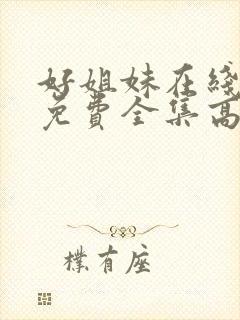 好姐妹在綫
免費全集高
樸有座